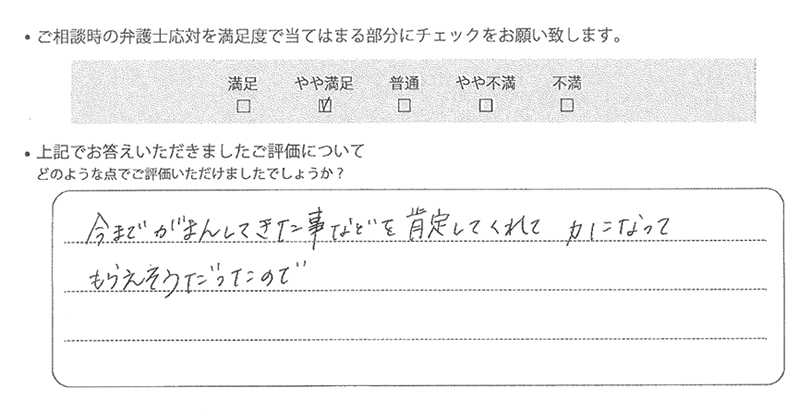 ・ご相談時の弁護士応対を満足度で当てはまる部分にチェックをお願い致します。
満足 やや満足 普通 やや不満 不満
□ ☑ □ □ □
・上記でお答えいただきましたご評価について
どのような点でご評価いただけましたでしょうか？
今までがまんしてきた事などを肯定してくれて 力になって
もらえそうだったので